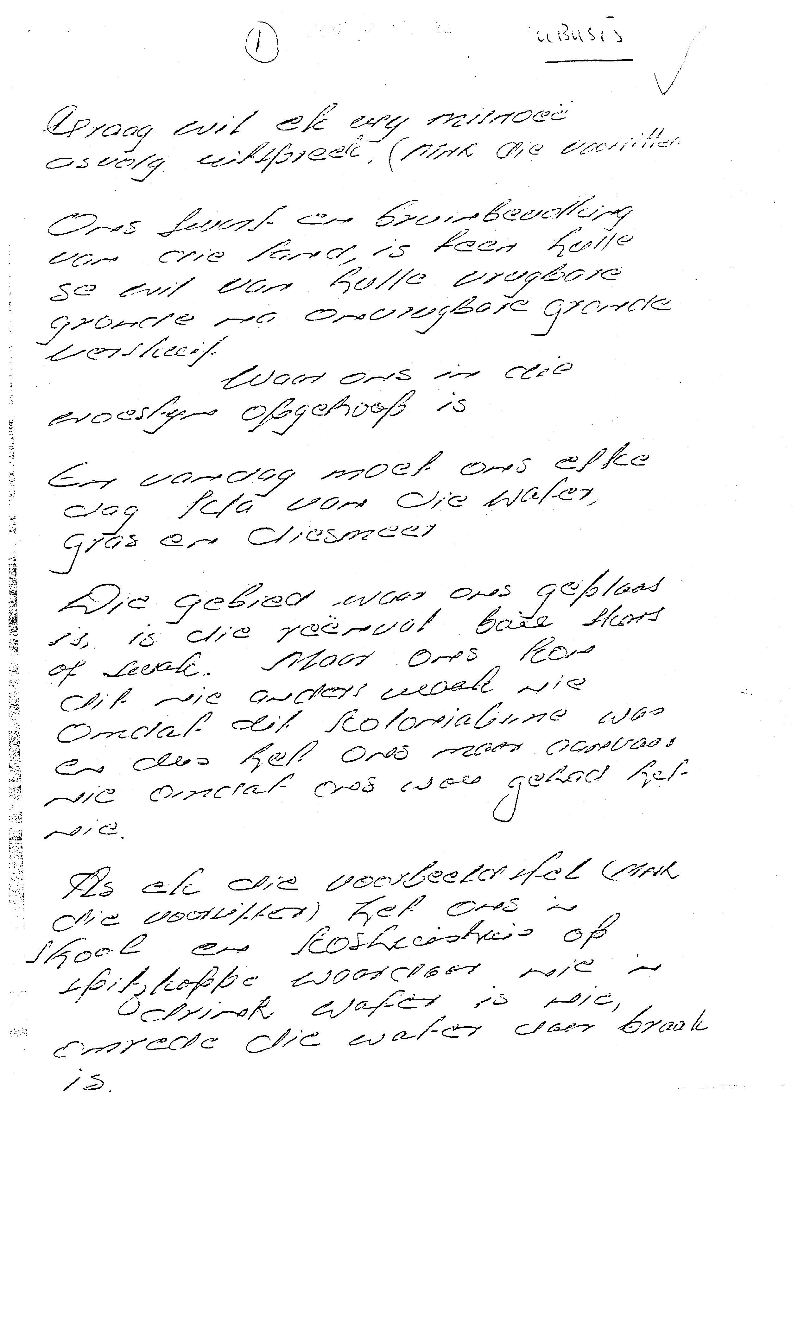 1
UBUSIS
Graag wil ek my misnoeë
asvolg uitspreek. (MNR die voorsitter
Ons swart en bruinbevolking
van die land, is teen hulle
se wil van hulle vrugbare
gronde na onvrugbare gronde
verskuif.
Waar ons in die
woestyn opgehoop is
En vandag moet ons elke
dag kla van die water,
gras en diesmeer
Die gebied waar ons geplaas
is, is die reënval baie skars
of swak. Maar ons kon
dit nie anders maak nie
omdat dit kolonialisme was
en dus het ons maar aanvaar
nie omdat ons wou gehad het
nie.
As ek die voorbeeld stel (MNR
die voorsitter) het ons 'n
skool en koshuishuis op
spitzkoppe waar daar nie 'n
drink water is nie,
omrede die water daar braak
is.